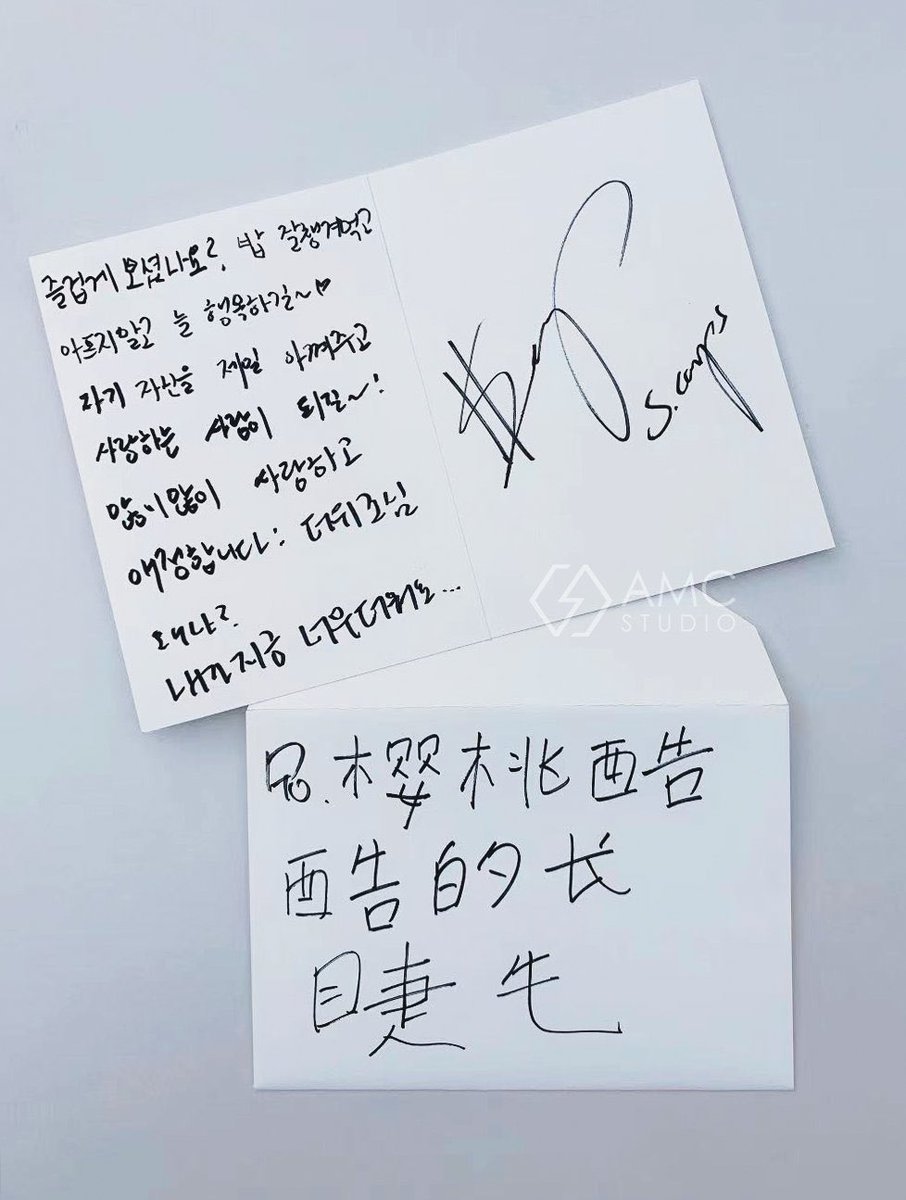 즐겁게 보셨나요?, 밥 잘챙겨먹고
아프지말고 늘 행복하길~♡
자기 자신을 제일 아껴주고
사랑하는 사람이 되길~!
많이많이 사랑하고
애정합니다! 더위조님
왜냐?
내가지금 너무더워요...
S.coups
AMC
STUDIO
To. 樱桃酷
酷的长
睫毛